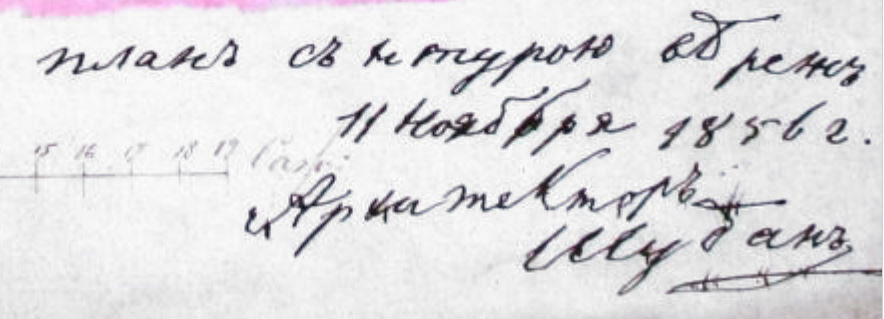 планъ съ натурою вѣренъ
11 Ноября 1856 г.
15 16 17 18 19 Саж:
Архитекторъ
Шубанъ